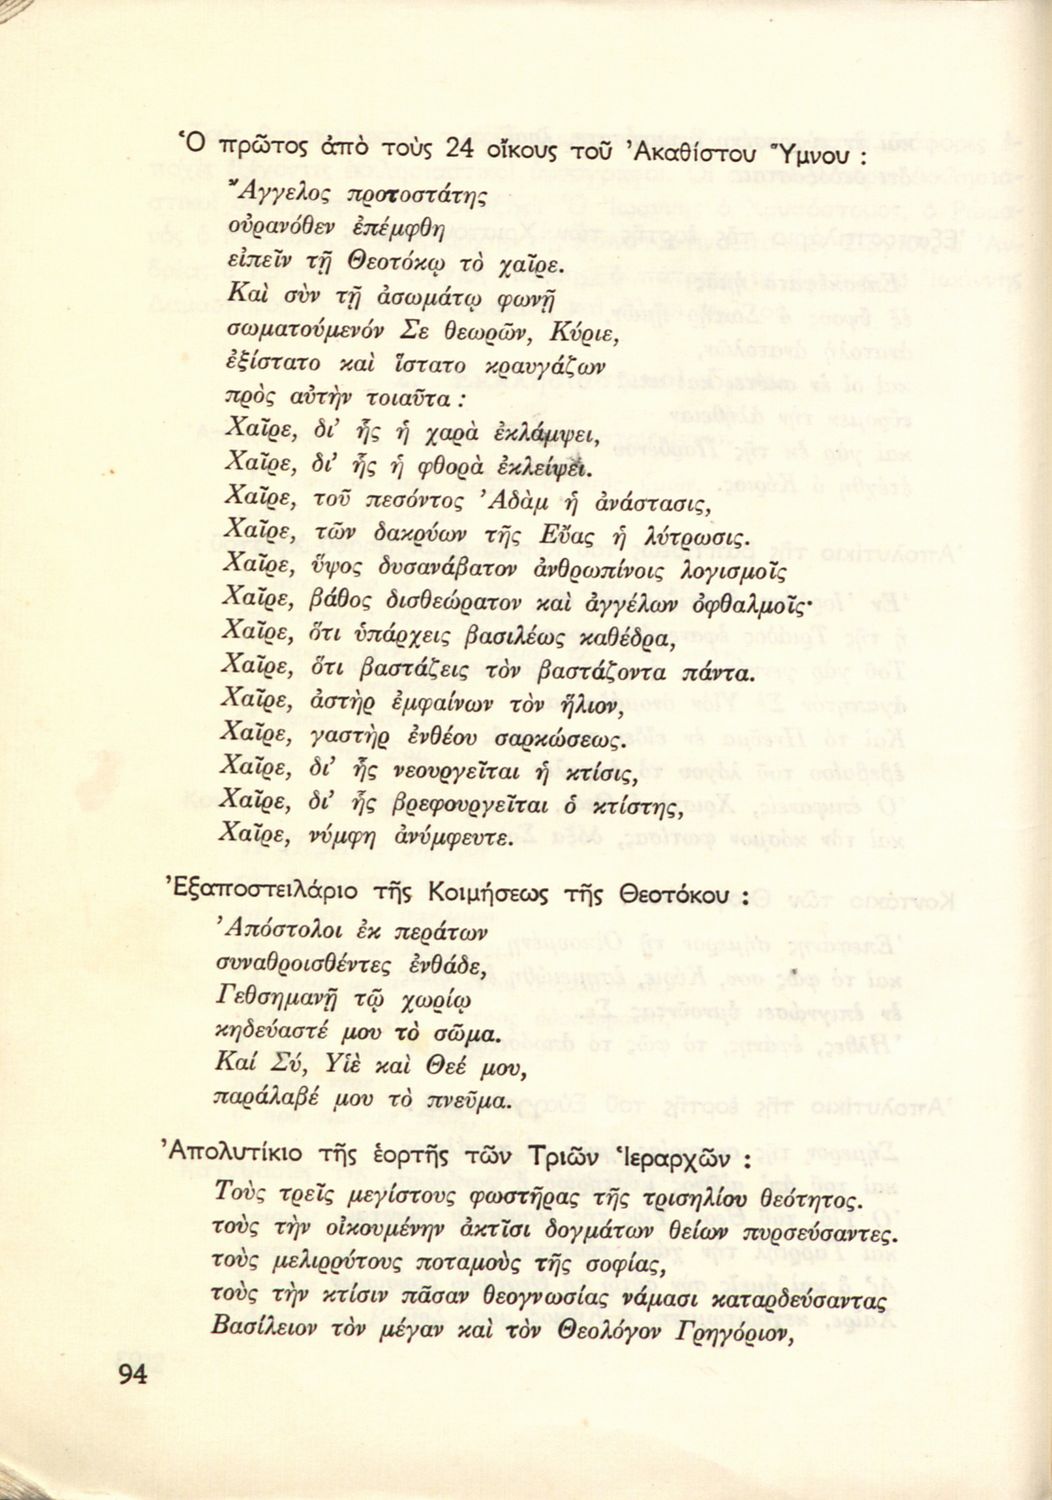 Ὁ πρῶτος ἀπὸ τοὺς 24 οἴκους τοῦ Ἀκαθίστου Ὕμνου :
Ἄγγελος προτοστάτης
οὐρανόθεν ἐπέμφθη
εἰπεῖν τῇ Θεοτόκῳ τὸ χαῖρε.
Καὶ σὺν τῇ ἀσωμάτῳ φωνῇ
σωματούμενόν Σε θεωρῶν, Κύριε,
ἐξίστατο καὶ ἵστατο κραυγάζων
πρὸς αὐτὴν τοιαῦτα :
Χαῖρε, δι’ ἧς ἡ χαρὰ ἐκλάμψει,
Χαῖρε, δι’ ἧς ἡ φθορὰ ἐκλείψει.
Χαῖρε, τοῦ πεσόντος Ἀδὰμ ἡ ἀνάστασις,
Χαῖρε, τῶν δακρύων τῆς Εὔας ἡ λύτρωσις.
Χαῖρε, ὕψος δυσανάβατον ἀνθρωπίνοις λογισμοῖς
Χαῖρε, βάθος δισθεώρατον καὶ ἀγγέλων ὀφθαλμοῖς·
Χαῖρε, ὅτι ὑπάρχεις βασιλέως καθέδρα,
Χαῖρε, ὅτι βαστάζεις τὸν βαστάζοντα πάντα.
Χαῖρε, ἀστὴρ ἐμφαίνων τὸν ἥλιον,
Χαῖρε, γαστὴρ ἐνθέου σαρκώσεως.
Χαῖρε, δι’ ἧς νεουργεῖται ἡ κτίσις,
Χαῖρε, δι’ ἧς βρεφουργεῖται ὁ κτίστης,
Χαῖρε, νύμφη ἀνύμφευτε.
Ἐξαποστειλάριο τῆς Κοιμήσεως τῆς Θεοτόκου :
Ἀπόστολοι ἐκ περάτων
συναθροισθέντες ἐνθάδε,
Γεθσημανῇ τῷ χωρίῳ
κηδεύαστέ μου τὸ σῶμα.
Καί Σύ, Υἱὲ καὶ Θεέ μου,
παράλαβέ μου τὸ πνεῦμα.
Ἀπολυτίκιο τῆς ἑορτῆς τῶν Τριῶν Ἱεραρχῶν :
Τοὺς τρεῖς μεγίστους φωστῆρας τῆς τρισηλίου θεότητος.
τοὺς τὴν οἰκουμένην ἀκτῖσι δογμάτων θείων πυρσεύσαντες.
τοὺς μελιρρύτους ποταμοὺς τῆς σοφίας,
τοὺς τὴν κτίσιν πᾶσαν θεογνωσίας νάμασι καταρδεύσαντας
Βασίλειον τὸν μέγαν καὶ τὸν Θεολόγον Γρηγόριον,
94